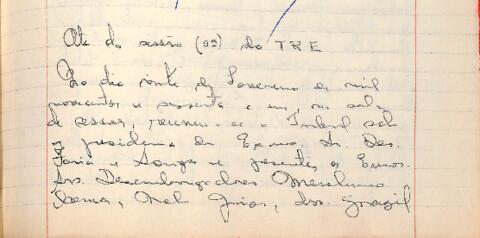 Ata da sessão (22) do TRE
No dia vinte de Fevereiro de mil
novecentos e sessenta e um, na sala
de sessões, reuniu-se o Tribunal sob
a presidencia do Exmo. Sr. Des.
Faria e Souza e presentes os Exmos.
Srs. Desembargadores Merolino
Correa, Melo Junior, Drs.